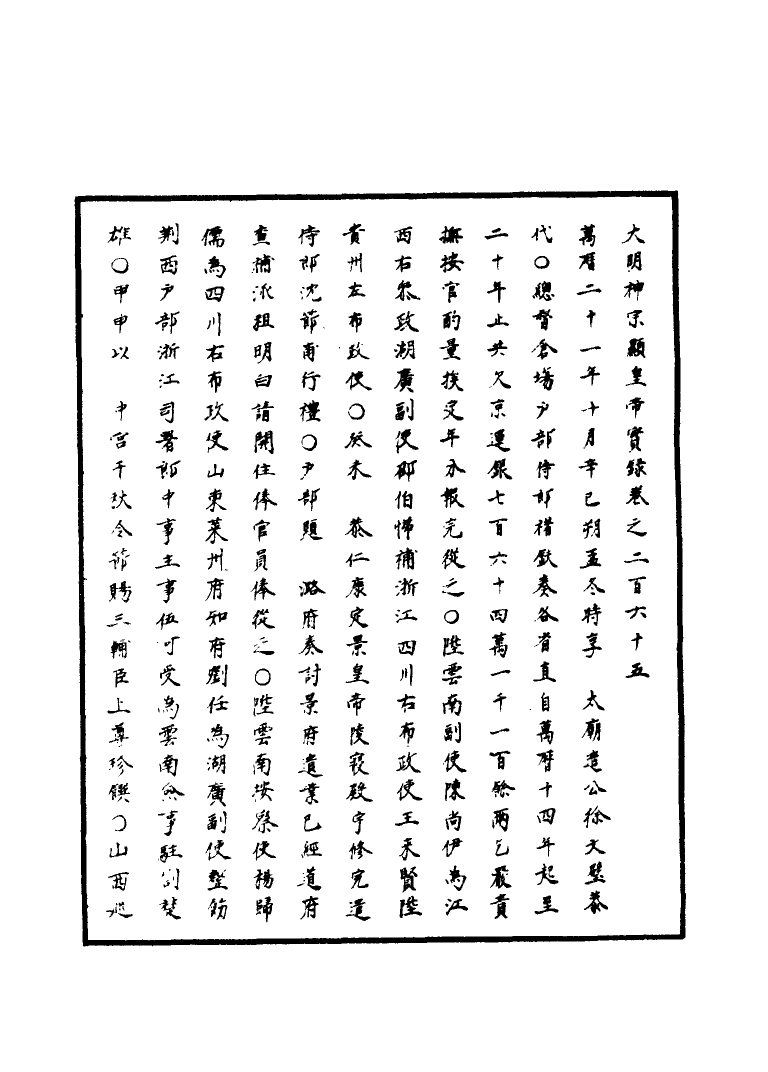 大明神宗顯皇帝實錄卷之二百六十五
萬曆二十一年十月辛巳朔孟冬時享　太廟遣公徐文璧恭
代○總督倉場戶部侍郎褚鈇奏各省直自萬曆十四年起至
二十年止共欠京運銀七百六十四萬一千一百餘兩乞嚴責
撫按官酌量挨定年分報完從之○陞雲南副使陳尚伊為江
西右叅政湖廣副使鄒伯悌補浙江四川右布政使王來賢陞
貴州左布政使○癸未　恭仁康定景皇帝陵寢殿宇修完遣
侍郎沈節甫行禮○戶部題　潞府奏討景府遺業已經道府
查補派租明白請開住俸官員俸從之○陞雲南按察使楊歸
儒為四川右布政使山東萊州府知府劉任為湖廣副使整飭
荊西戶部浙江司署郎中事主事伍可受為雲南僉事駐劄楚
雄○甲申以　中宮千秋令節賜三輔臣上尊珍饌○山西巡